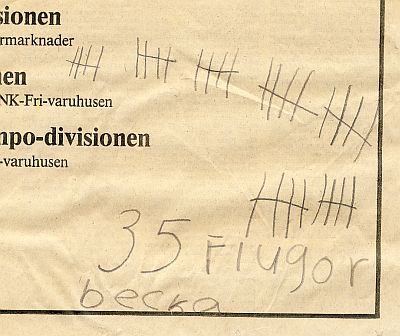 sionen
ermarknader
nen
NK-Fri-varuhusen
mpo-divisionen
-varuhusen
35 Flugor
becka